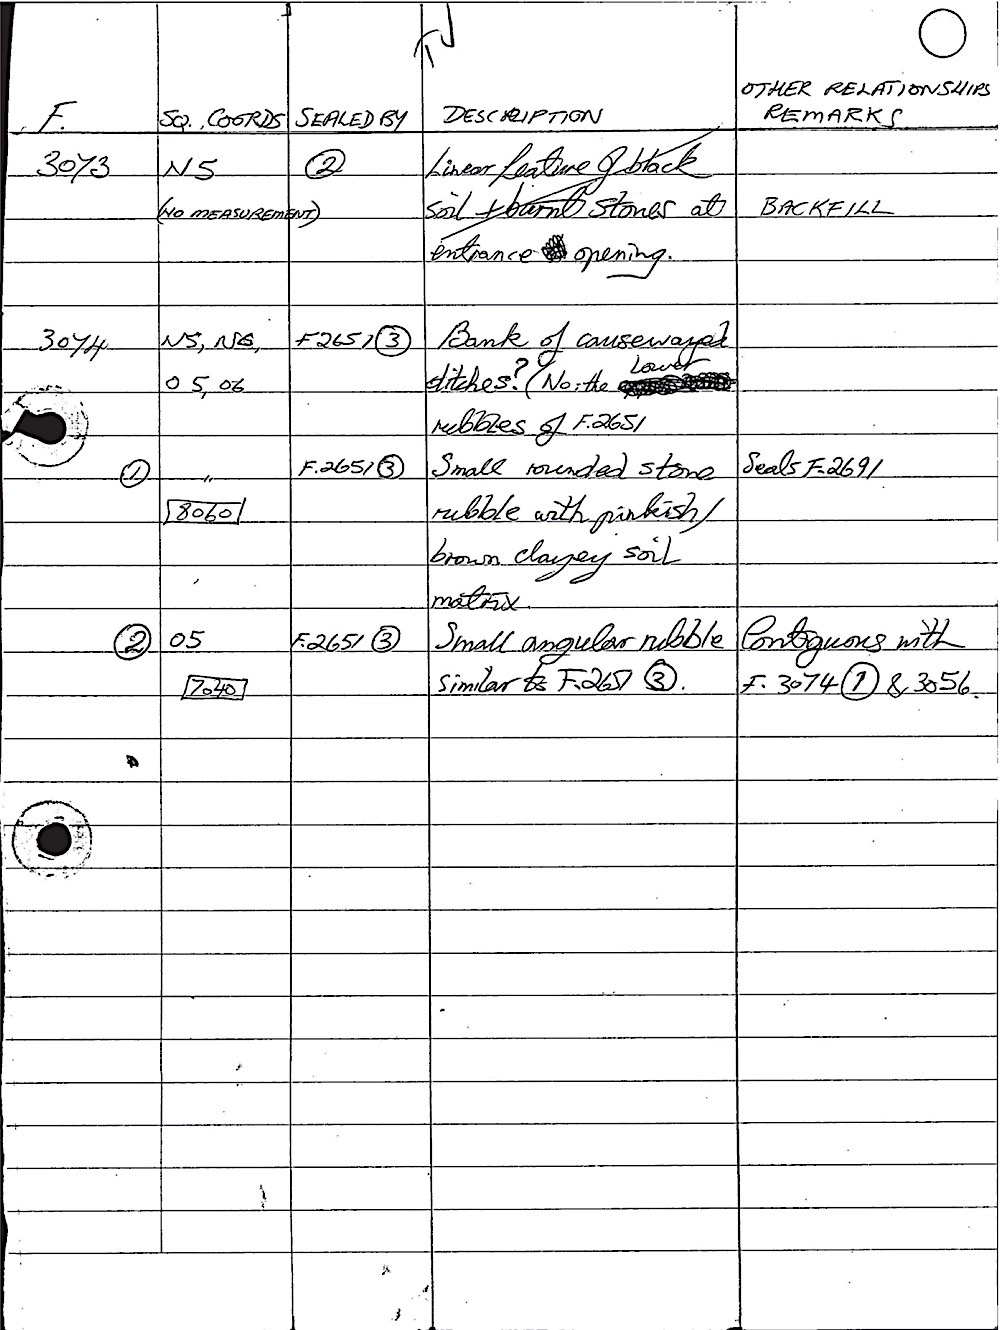 OTHER RELATIONSHIPS
F. SQ. COORDS SEALED BY DESCRIPTION REMARKS
3073 N5 ② Linear feature of black
(NO MEASUREMENT) soil + burnt stones at BACKFILL
entrance opening.
3074 N5, N6, F2651 ③ Bank of causewayed
05, 06 ditches? (No: the Lower
rubbles of F.2651
① " F.2651 ③ Small rounded stone Seals F.2691
8060 rubble with pinkish/
brown clayey soil
matrix.
② 05 F.2651 ③ Small angular rubble Contiguous with
7040 similar to F.2651 ③. F. 3074 ① & 3056.